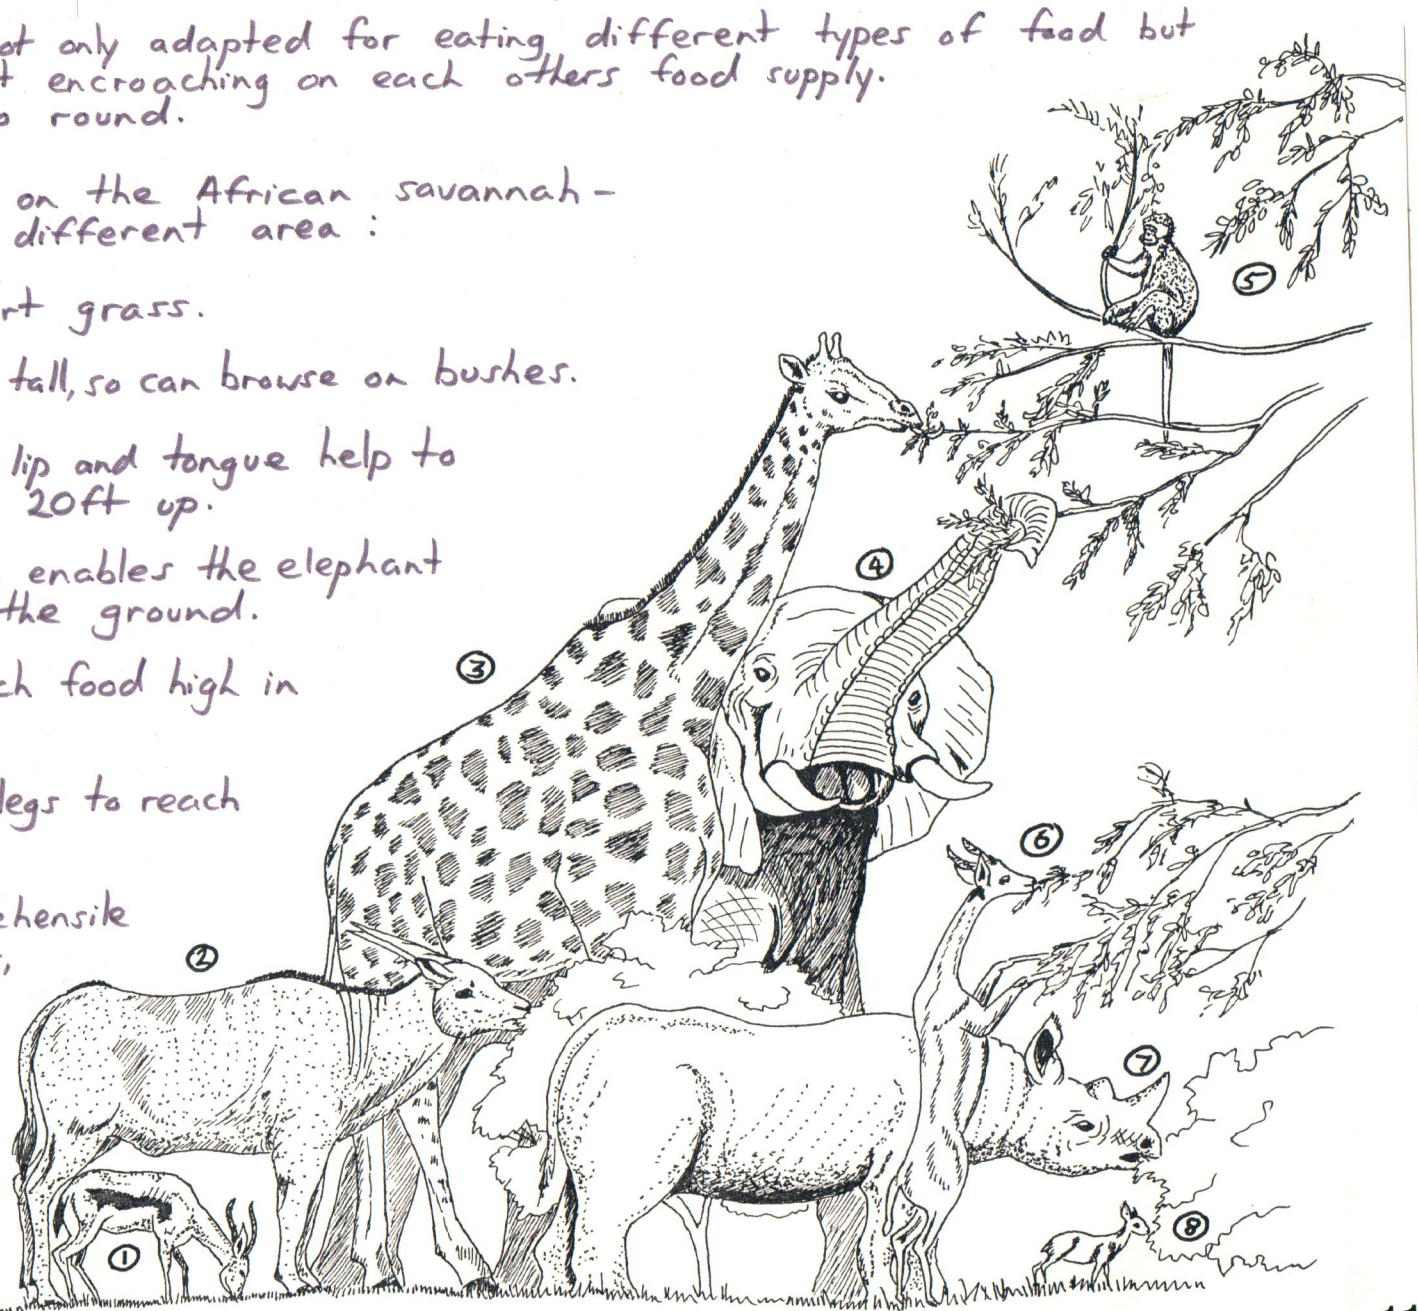 ot only adapted for eating different types of food but
t encroaching on each others food supply.
o round.
on the African savannah -
different area :
rt grass.
tall, so can browse on bushes.
lip and tongue help to
20ft up.
enables the elephant
the ground.
ch food high in
legs to reach
ehensile
1
2
3
4
5
6
7
8